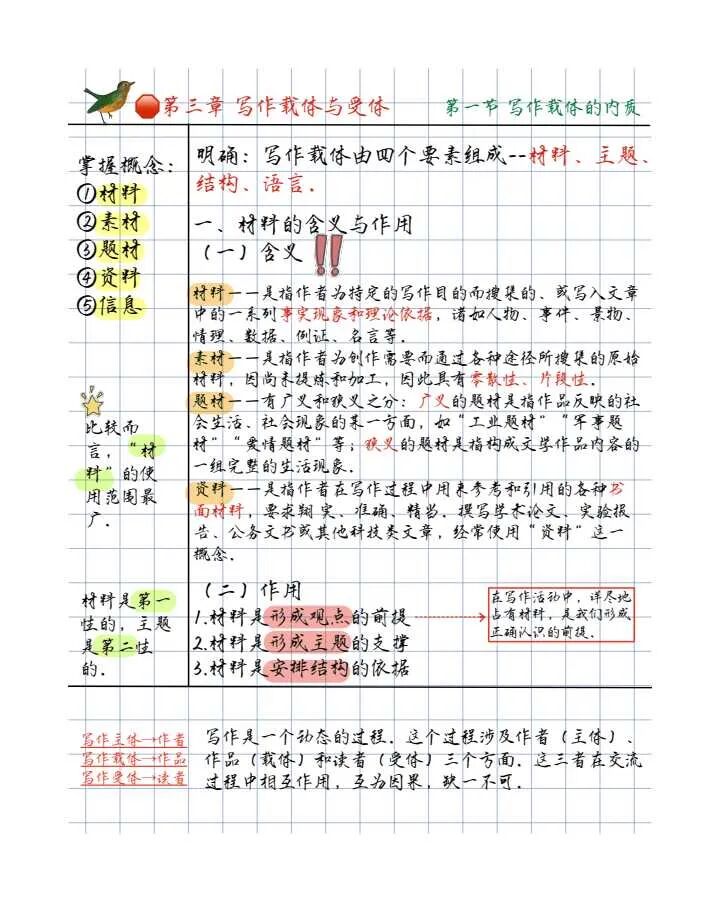 第三章 写作载体与受体
第一节 写作载体的内质
掌握概念：
①材料
②素材
③题材
④资料
⑤信息
比较而
言，“材
料”的使
用范围最
广.
材料是第一
性的，主题
是第二性
的.
明确：写作载体由四个要素组成--材料、主题、
结构、语言.
一、材料的含义与作用
（一）含义
材料——是指作者为特定的写作目的而搜集的、或写入文章
中的一系列事实现象和理论依据，诸如人物、事件、景物、
情理、数据、例证、名言等.
素材——是指作者为创作需要而通过各种途径所搜集的原始
材料，因尚未提炼和加工，因此具有零散性、片段性.
题材——有广义和狭义之分：广义的题材是指作品反映的社
会生活、社会现象的某一方面，如“工业题材”“军事题
材”“爱情题材”等；狭义的题材是指构成文学作品内容的
一组完整的生活现象.
资料——是指作者在写作过程中用来参考和引用的各种书
面材料，要求翔实、准确、精当.撰写学术论文、实验报
告、公务文书或其他科技类文章，经常使用“资料”这一
概念.
（二）作用
1.材料是形成观点的前提
2.材料是形成主题的支撑
3.材料是安排结构的依据
在写作活动中，详尽地
占有材料，是我们形成
正确认识的前提.
写作主体→作者
写作载体→作品
写作受体→读者
写作是一个动态的过程.这个过程涉及作者（主体）、
作品（载体）和读者（受体）三个方面.这三者在交流
过程中相互作用，互为因果，缺一不可.